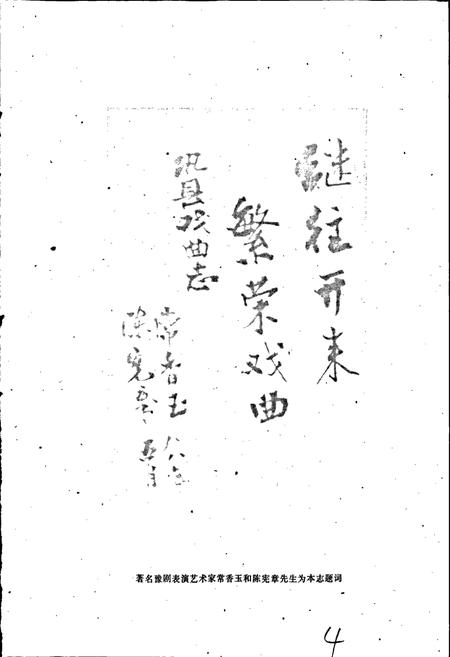 继往开来
繁荣戏曲
巩县戏曲志
常香玉
陈宪章
著名豫剧表演艺术家常香玉和陈宪章先生为本志题词
4